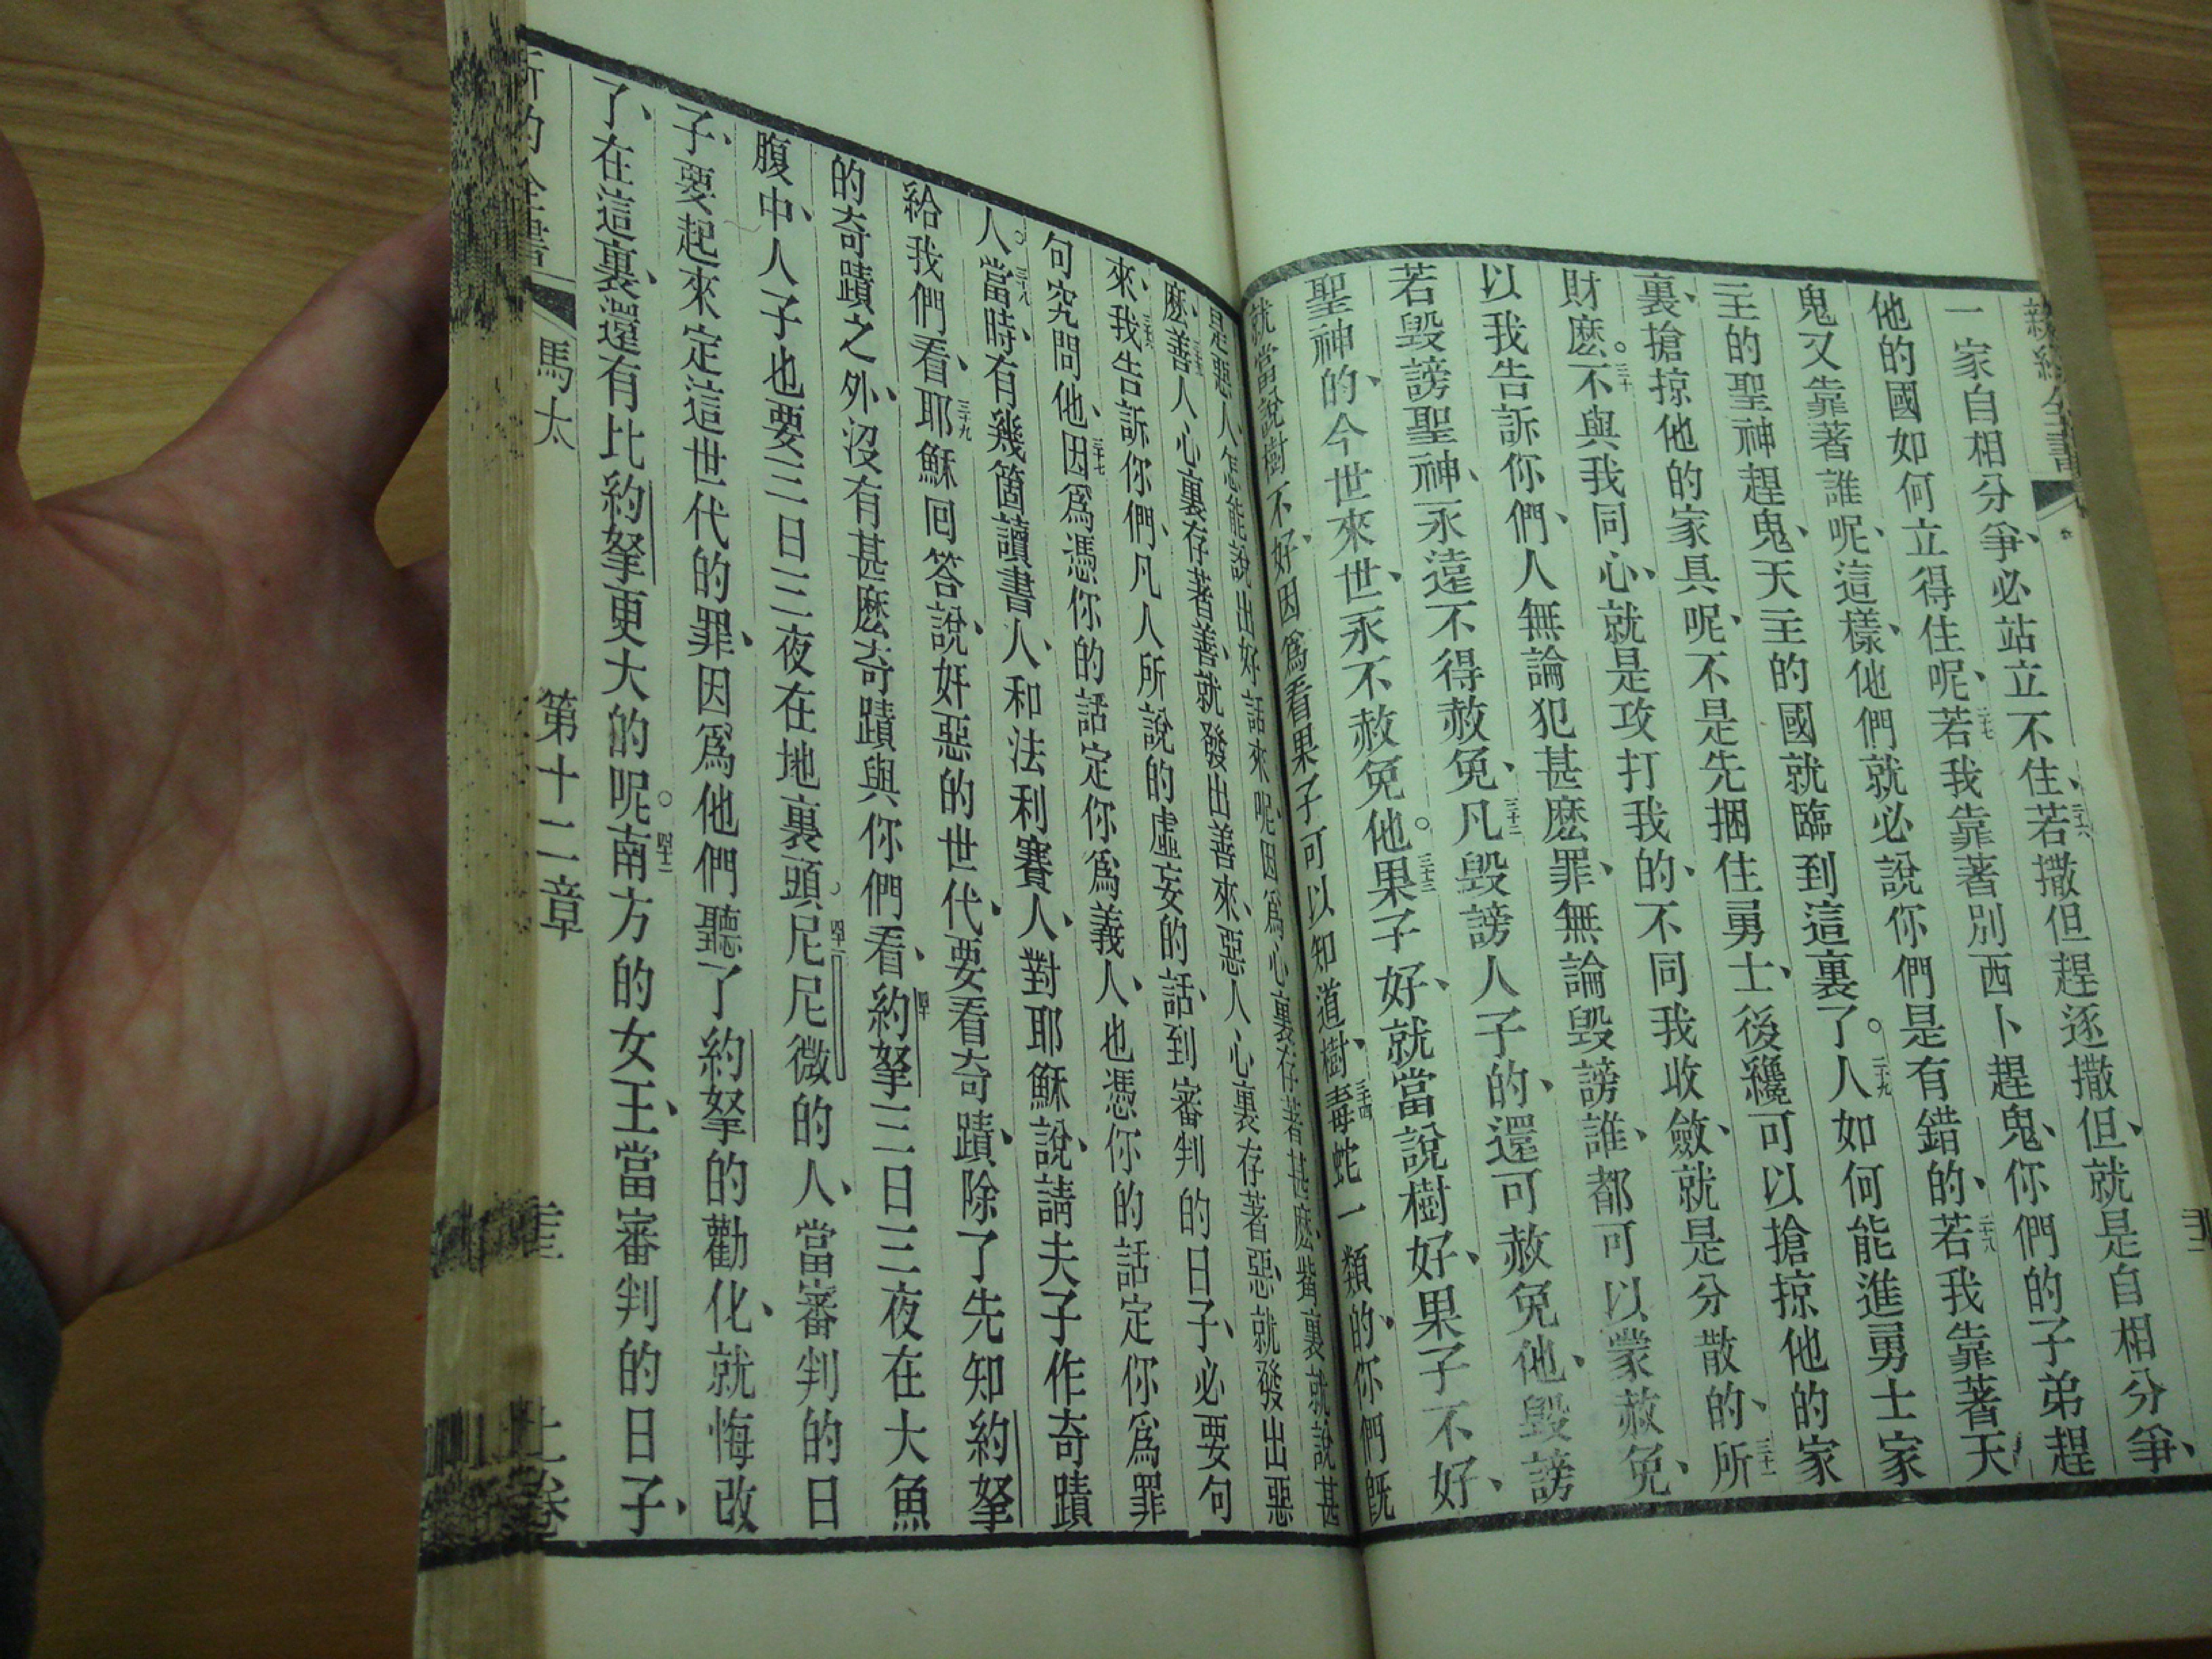 新約全書
一家自相分爭、必站立不住、二十六若撒但趕逐撒但、就是自相分爭、
他的國如何立得住呢、二十七若我靠著別西卜趕鬼、你們的子弟趕
鬼又靠著誰呢、這樣、他們就必說你們是有錯的、二十八若我靠著天
主的聖神趕鬼、天主的國就臨到這裏了。二十九人如何能進勇士家
裏、搶掠他的家具呢、不是先捆住勇士、後纔可以搶掠他的家
財麽。三十不與我同心、就是攻打我的、不同我收斂、就是分散的、三十一所
以我告訴你們、人無論犯甚麽罪、無論毀謗誰、都可以蒙赦免、
若毀謗聖神、永遠不得赦免、三十二凡毀謗人子的、還可赦免他、毀謗
聖神的、今世來世、永不赦免他。三十三果子好、就當說樹好、果子不好、
就當說樹不好、因爲看果子可以知道樹、三十四毒蛇一類的、你們旣
是惡人、怎能說出好話來呢、因爲心裏存著甚麽、嘴裏就說甚
麽、三十五善人心裏存著善、就發出善來、惡人心裏存著惡、就發出惡
來、三十六我告訴你們、凡人所說的虛妄的話、到審判的日子、必要句
句究問他、三十七因爲憑你的話定你爲義人、也憑你的話定你爲罪
人。三十八當時、有幾箇讀書人、和法利賽人、對耶穌說、請夫子作奇蹟
給我們看、三十九耶穌回答說、奸惡的世代、要看奇蹟、除了先知約拏
的奇蹟之外、沒有甚麽奇蹟與你們看、四十約拏三日三夜在大魚
腹中、人子也要三日三夜在地裏頭、四十一尼尼微的人、當審判的日
子、要起來定這世代的罪、因爲他們聽了約拏的勸化、就悔改
了、在這裏、還有比約拏更大的呢。四十二南方的女王、當審判的日子、
新約全書 馬太 第十二章 上卷